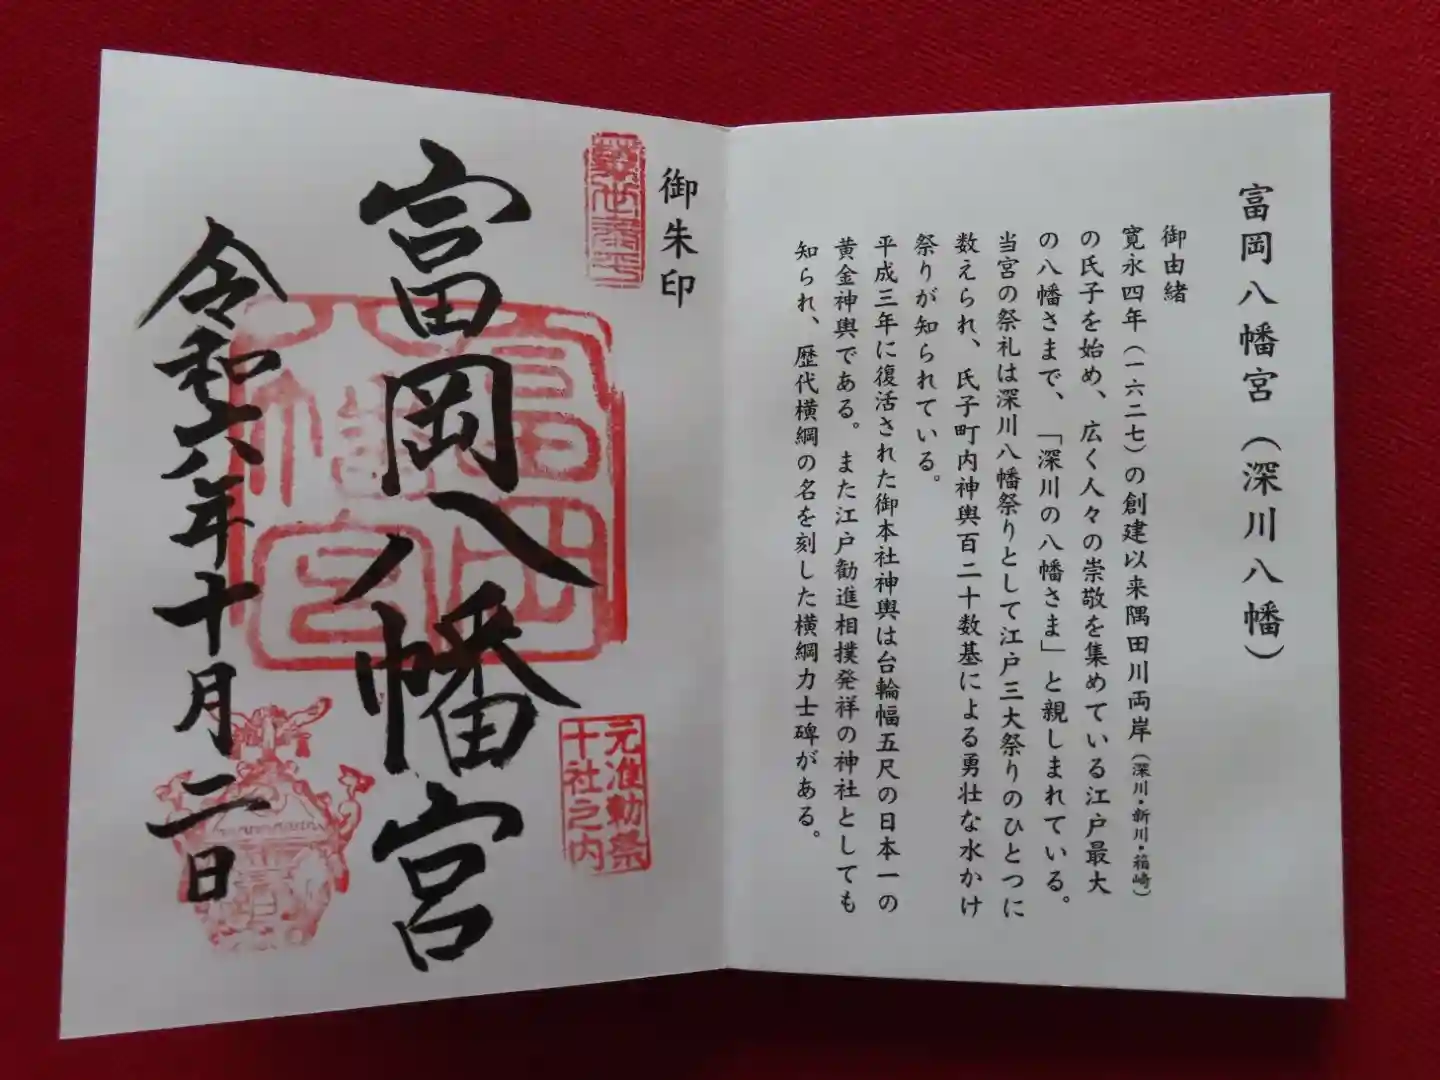 富岡八幡宮(深川八幡)
御由緒
寛永四年(一六二七)の創建以来隅田川両岸(深川・新川・箱崎)
の氏子を始め、広く人々の崇敬を集めている江戸最大
の八幡さまで、「深川の八幡さま」と親しまれている。
当宮の祭礼は深川八幡祭りとして江戸三大祭りのひとつに
数えられ、氏子町内神輿百二十数基による勇壮な水かけ
祭りが知られている。
平成三年に復活された御本社神輿は台輪幅五尺の日本一の
黄金神輿である。また江戸勧進相撲発祥の神社としても
知られ、歴代横綱の名を刻した横綱力士碑がある。
御朱印
元准勅祭
十社之内
富岡八幡宮
富岡
八幡宮
令和六年十月二日